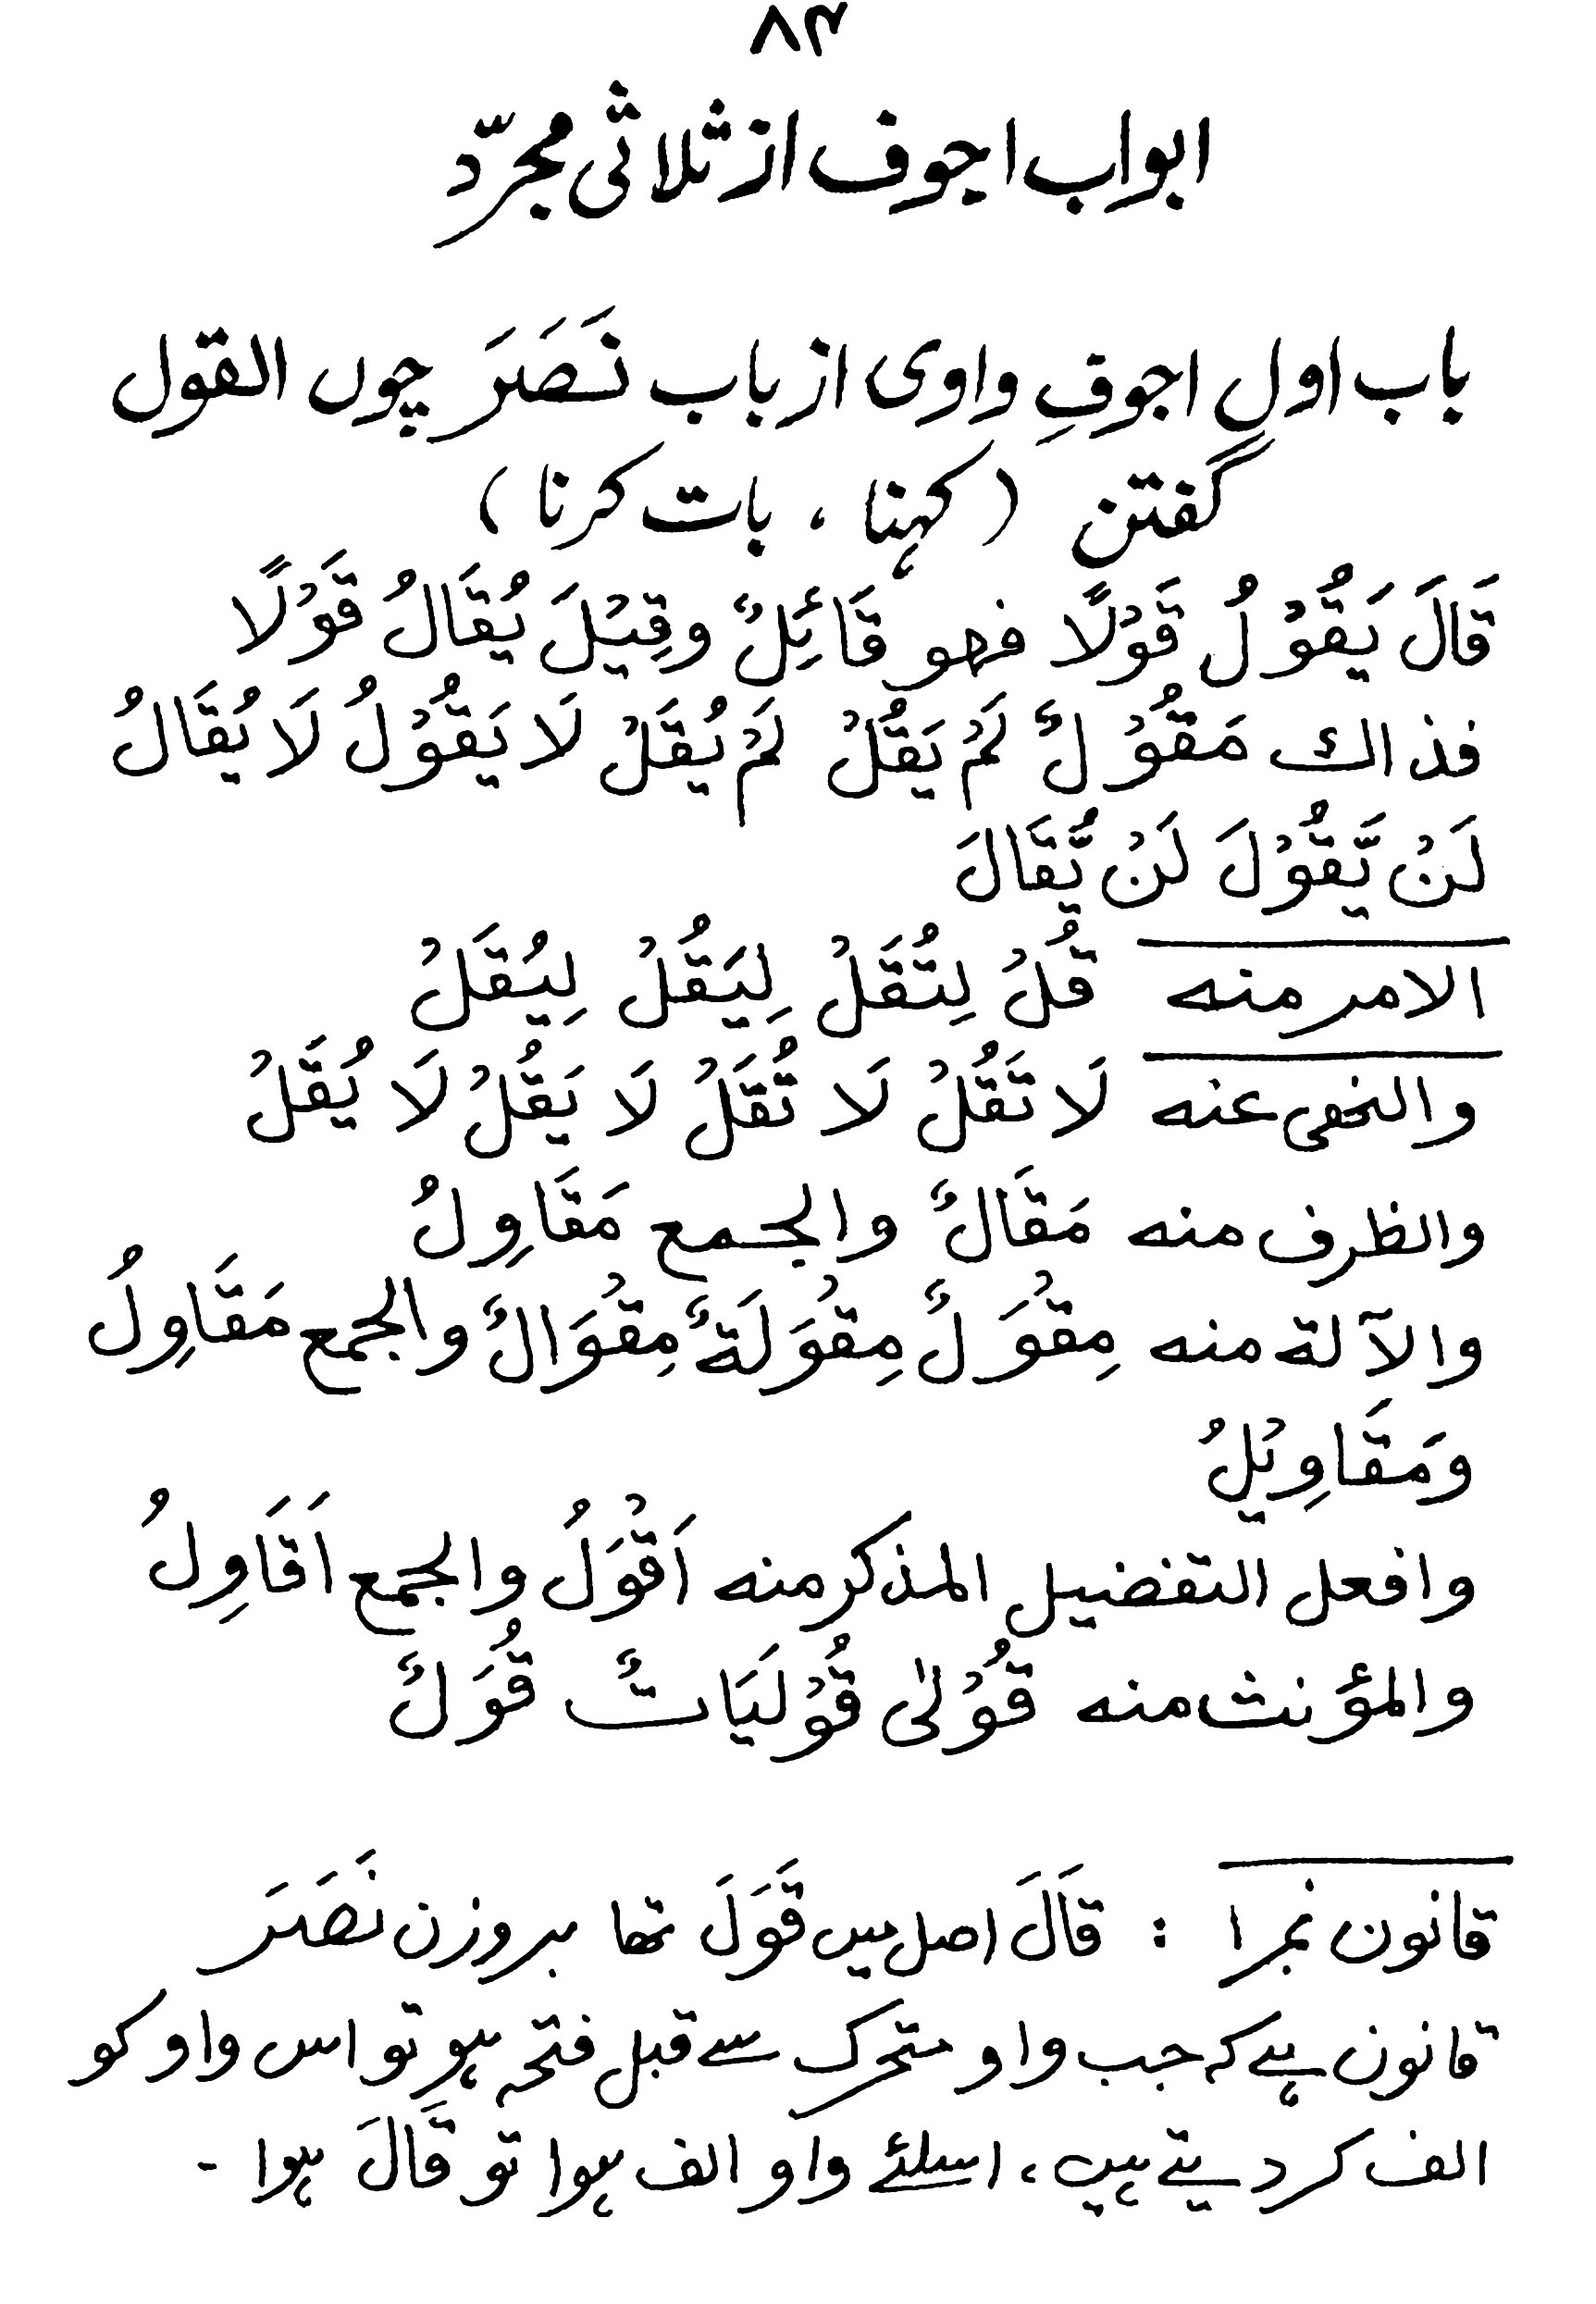 ۸۳
ابواب اجوف از ثلاثی مجرّد
باب اول اجوفِ واوی از باب نَصَرَ چوں القول
گفتن (کہنا ، بات کرنا)
قَالَ يَقُوْلُ قَوْلًا فهو قَائِلٌ وقِيْلَ يُقَالُ قَوْلًا
فذاك مَقُوْلٌ لَمْ يَقُلْ لَمْ يُقَلْ لَا يَقُوْلُ لَا يُقَالُ
لَنْ يَّقُوْلَ لَنْ يُّقَالَ
الامر منه قُلْ لِتُقَلْ لِيَقُلْ لِيُقَلْ
والنهى عنه لَا تَقُلْ لَا تُقَلْ لَا يَقُلْ لَا يُقَلْ
والظرف منه مَقَالٌ والجمع مَقَاوِلُ
والآلة منه مِقْوَلٌ مِقْوَلَةٌ مِقْوَالٌ والجمع مَقَاوِلُ
وَمَقَاوِيْلُ
وافعل التفضيل المذكر منه اَقْوَلُ والجمع اَقَاوِلُ
والمؤنث منه قُوْلٰى قُوْلَيَاتٌ قُوَلٌ
قانون نمبر ۱ : قَالَ اصل میں قَوَلَ تھا بروزن نَصَرَ
قانون ہے کہ جب واو متحرک سے قبل فتحہ ہو تو اس واو کو
الف کر دیتے ہیں، اسلئے واو الف ہوا تو قَالَ ہوا ۔